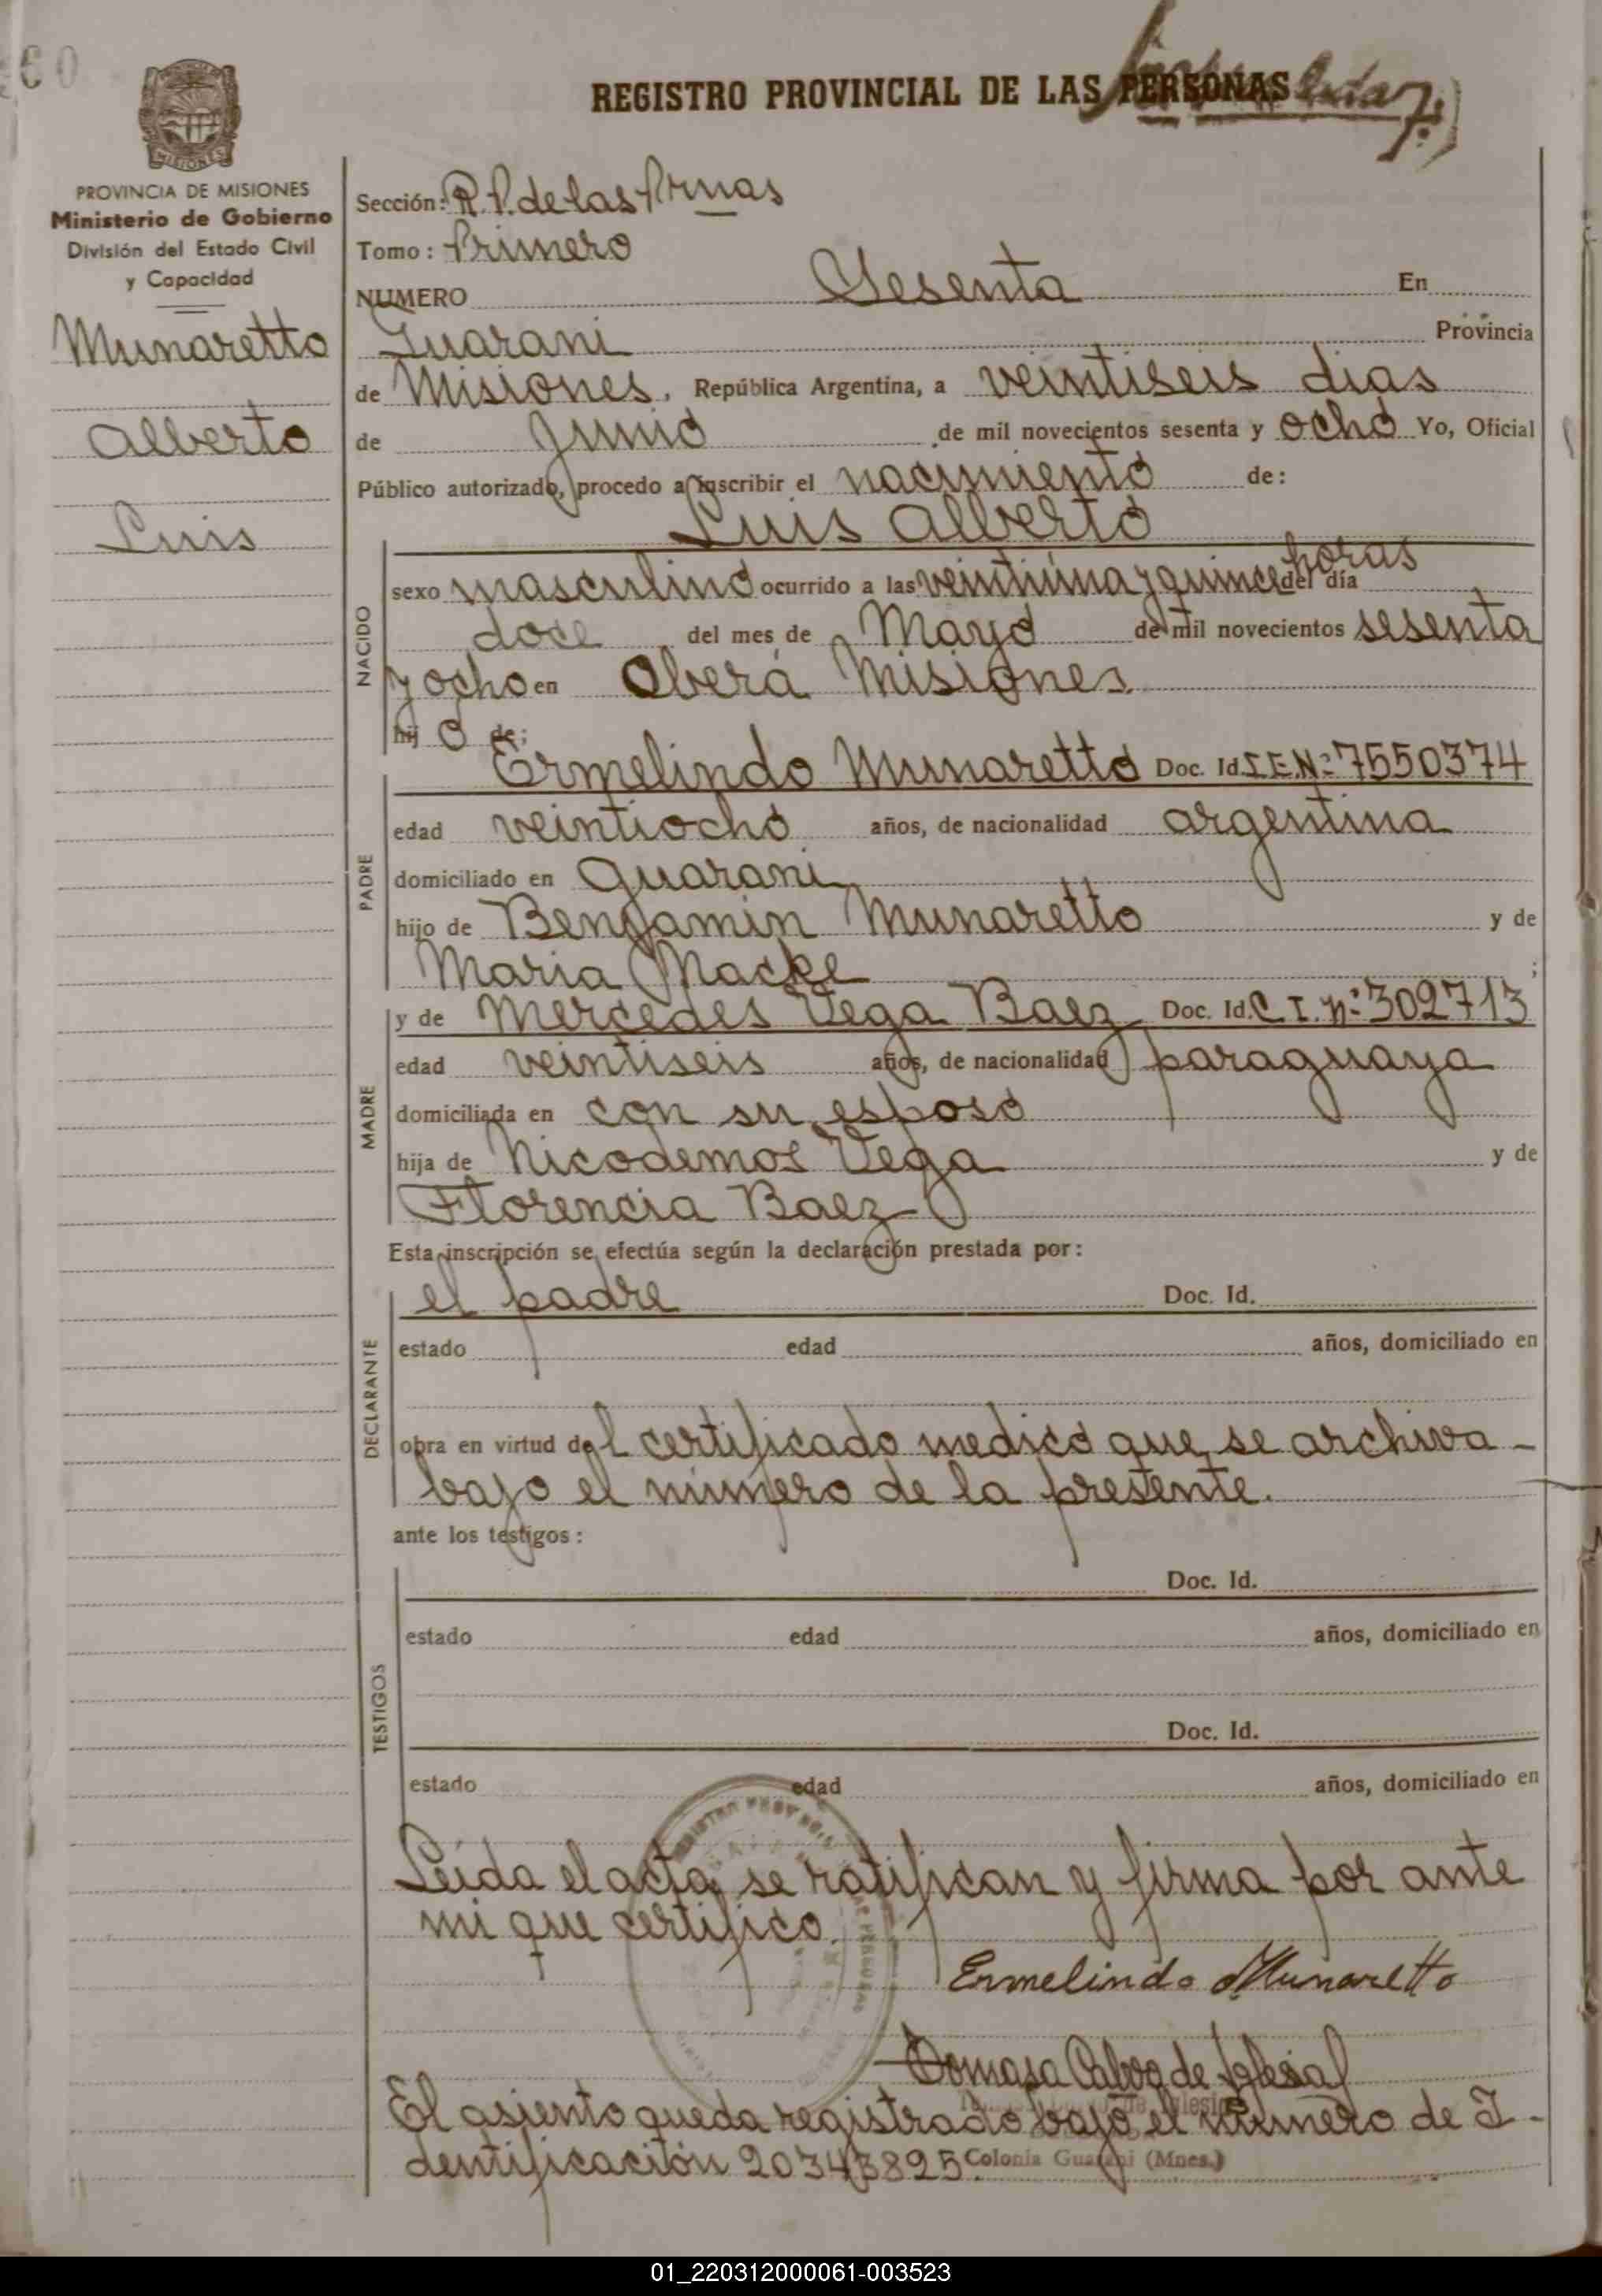 60
REGISTRO PROVINCIAL DE LAS PERSONAS
PROVINCIA DE MISIONES
Ministerio de Gobierno
División del Estado Civil
y Capacidad
Munaretto
Alberto
Luis
Sección: R.P. de las Prnas
Tomo: Primero
NUMERO Sesenta En
Guarani Provincia
de Misiones, República Argentina, a veintiseis dias
de Junio de mil novecientos sesenta y ocho Yo, Oficial
Público autorizado, procedo a inscribir el nacimiento de:
Luis Alberto
NACIDO
sexo masculino ocurrido a las veintiuna y quince horas del día
doce del mes de Mayo de mil novecientos sesenta
y ocho en Oberá Misiones.
hij o de:
PADRE
Ermelindo Munaretto Doc. Id. I.E.Nº 7550374
edad veintiocho años, de nacionalidad argentina
domiciliado en Guarani
hijo de Benjamin Munaretto y de
Maria Macke ;
MADRE
y de Mercedes Vega Baez Doc. Id. C.I. Nº 302713
edad veintiseis años, de nacionalidad paraguaya
domiciliada en con su esposo
hija de Nicodemos Vega y de
Florencia Baez
Esta inscripción se efectúa según la declaración prestada por:
DECLARANTE
el padre Doc. Id.
estado edad años, domiciliado en
obra en virtud del certificado medico que se archiva
bajo el número de la presente.
ante los testigos:
TESTIGOS
Doc. Id.
estado edad años, domiciliado en
Doc. Id.
estado edad años, domiciliado en
Leida el acta, se ratifican y firma por ante
mi que certifico.
Ermelindo Munaretto
Tomasa Calvo de Iglesias
El asiento queda registrado bajo el número de I-
dentificación 20343825.
Colonia Guarani (Mnes.)
01_220312000061-003523